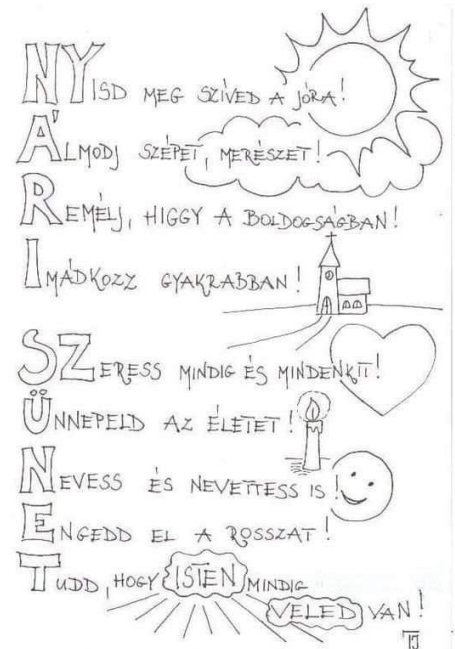 NYISD MEG SZÍVED A JÓRA!
ÁLMODJ SZÉPET, MERÉSZET!
REMÉLJ, HIGGY A BOLDOGSÁGBAN!
IMÁDKOZZ GYAKRABBAN!
SZERESS MINDIG ÉS MINDENKIT!
ÜNNEPELD AZ ÉLETET!
NEVESS ÉS NEVETTESS IS!
ENGEDD EL A ROSSZAT!
TUDD, HOGY ISTEN MINDIG
VELED VAN!
TJ